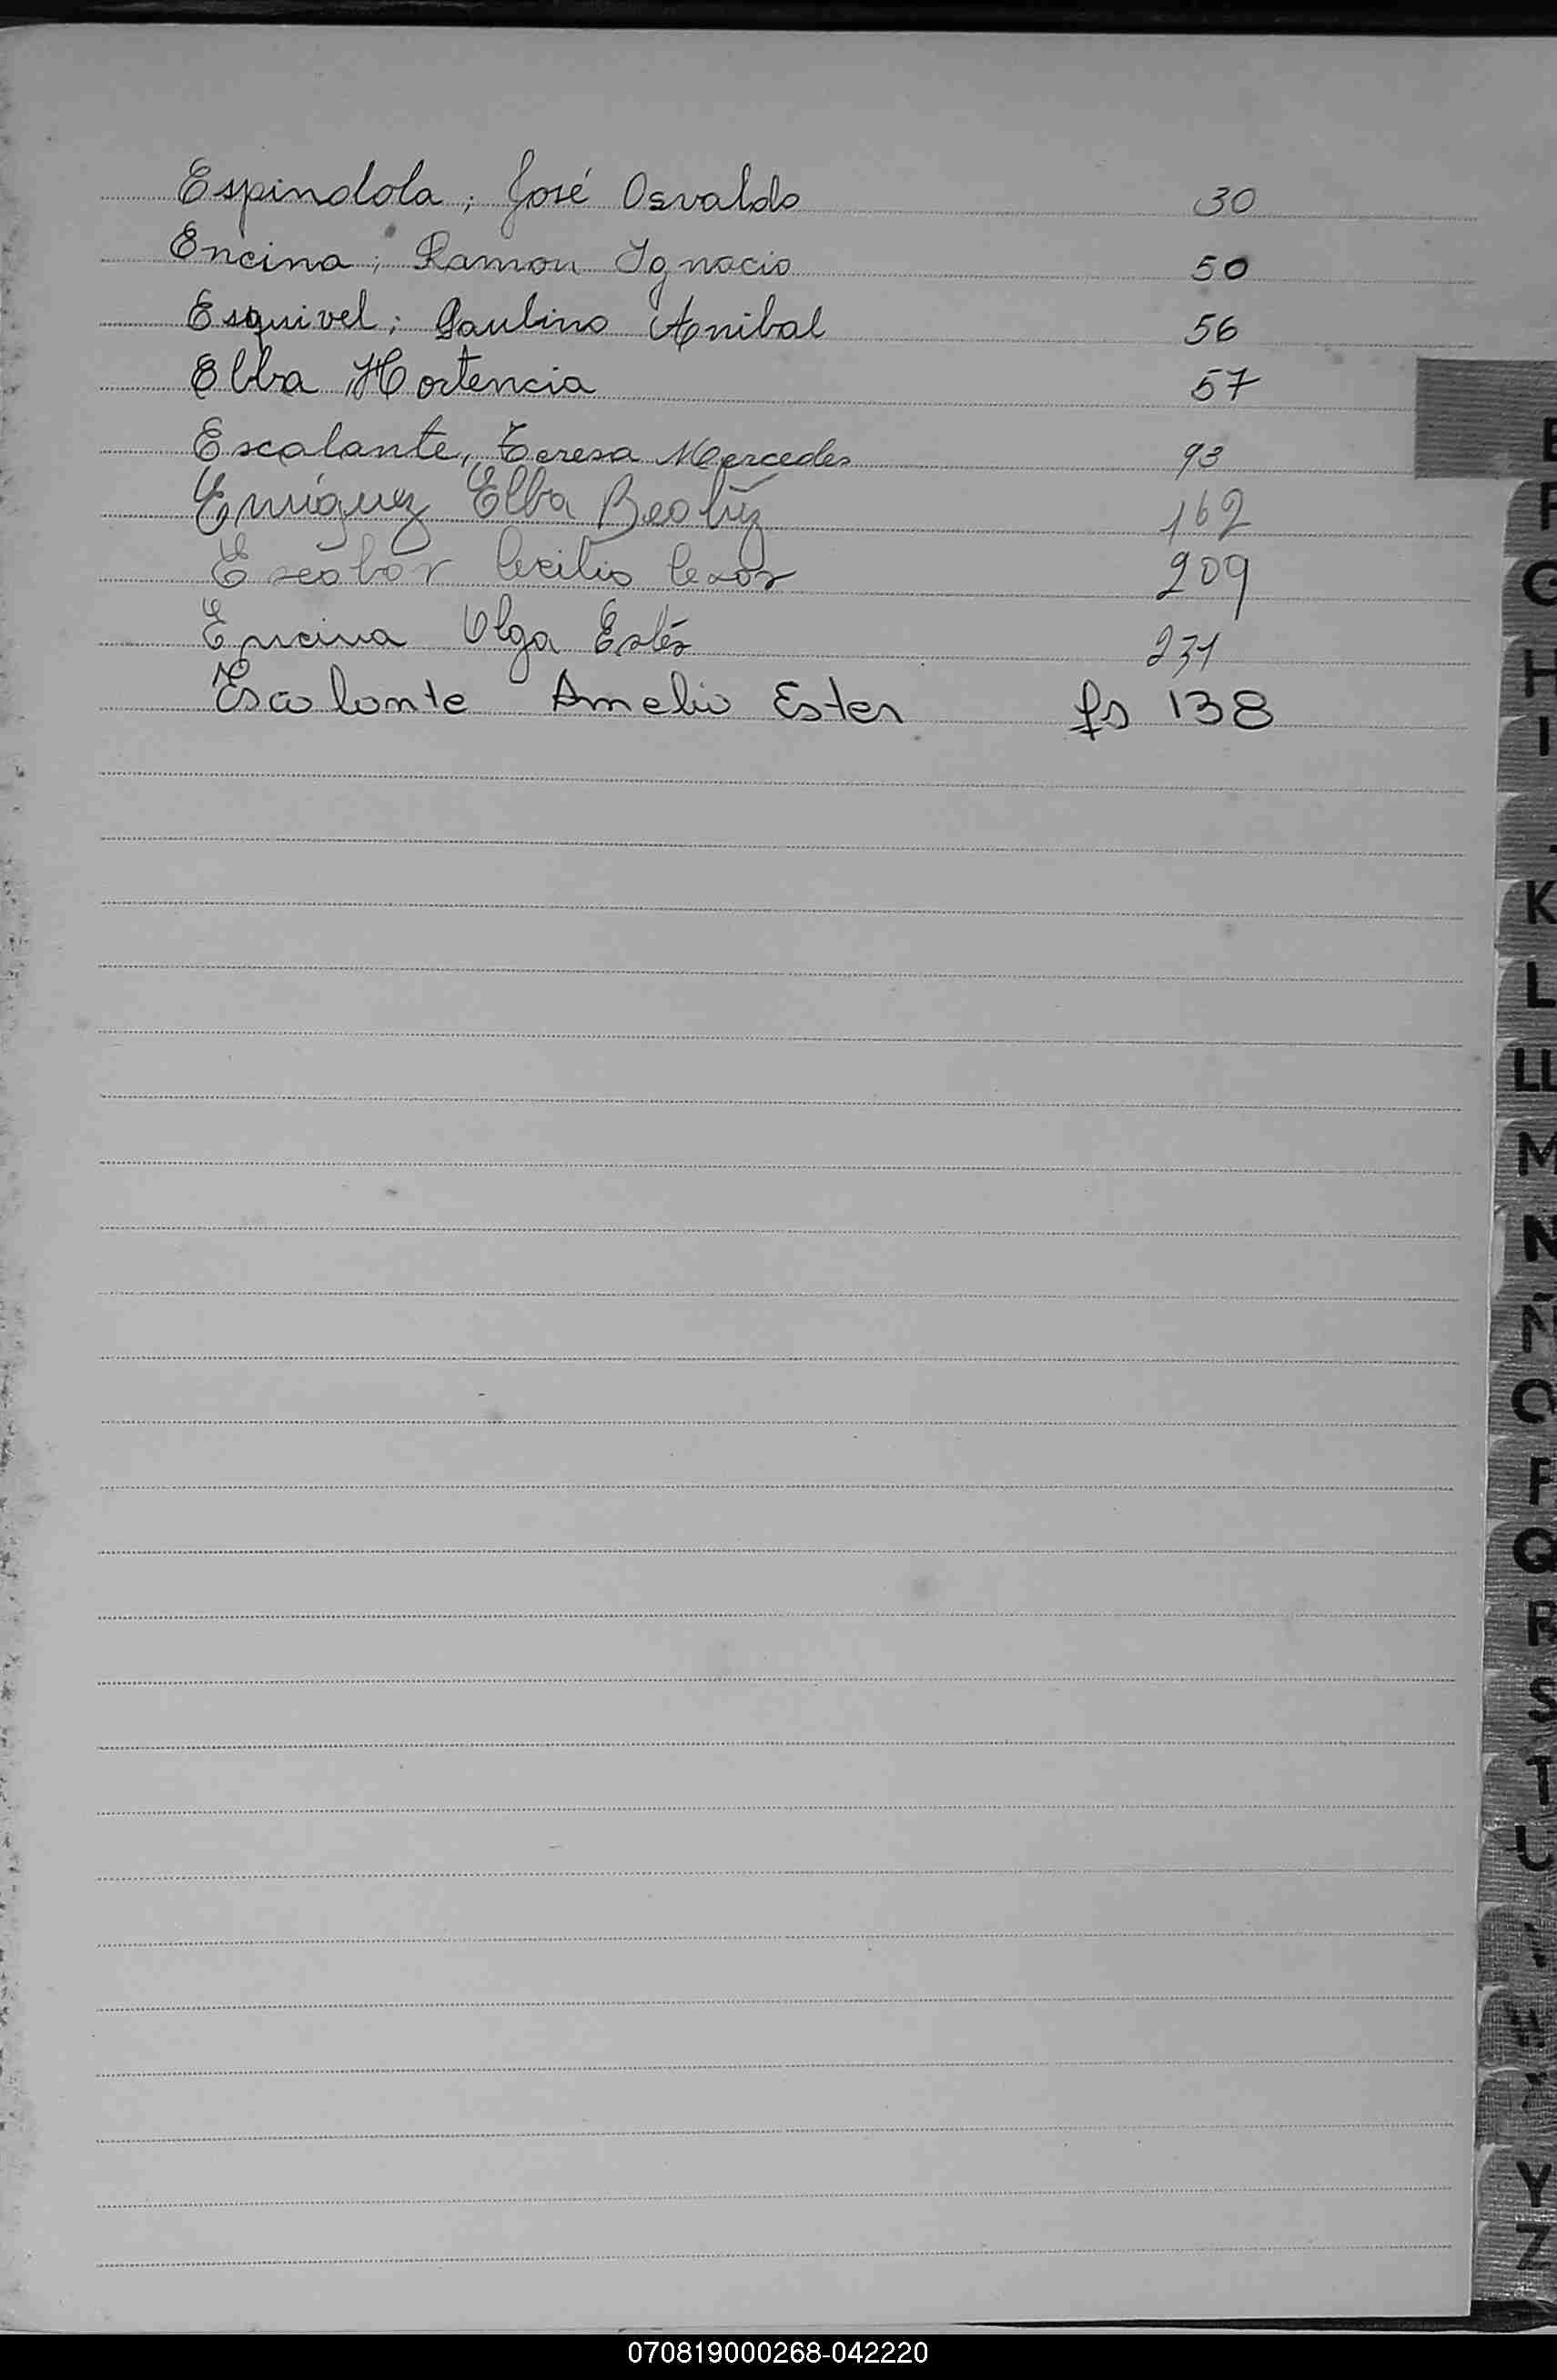 Espindola, José Osvaldo 30
Encina, Ramon Ignacio 50
Esquivel, Paulino Anibal 56
Elba Hortencia 57
Escalante, Teresa Mercedes 93
Enriquez Elba Beatriz 162
Escobar Cecilio Cezar 209
Encina Olga Estér 231
Escalante Amelia Ester fs 138
E
F
G
H
I
K
L
LL
M
N
Ñ
O
P
Q
R
S
T
U
Y
Z
070819000268-042220